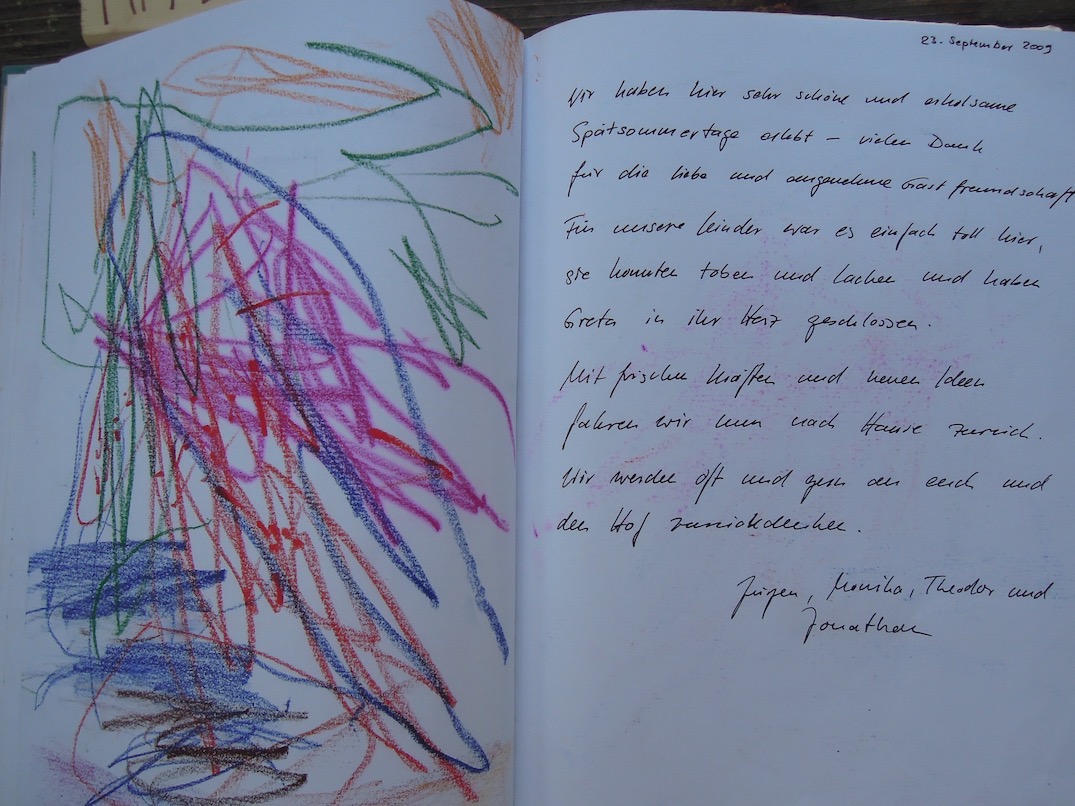 23. September 2009
Wir haben hier sehr schöne und erholsame
Spätsommertage erlebt – vielen Dank
für die liebe und angenehme Gastfreundschaft
Für unsere Kinder war es einfach toll hier,
sie konnten toben und lachen und haben
Greta in ihr Herz geschlossen.
Mit frischen Kräften und neuen Ideen
fahren wir nun nach Hause zurück.
Wir werden oft und gern an euch und
den Hof zurückdenken.
Jürgen, Monika, Theodor und
Jonathan